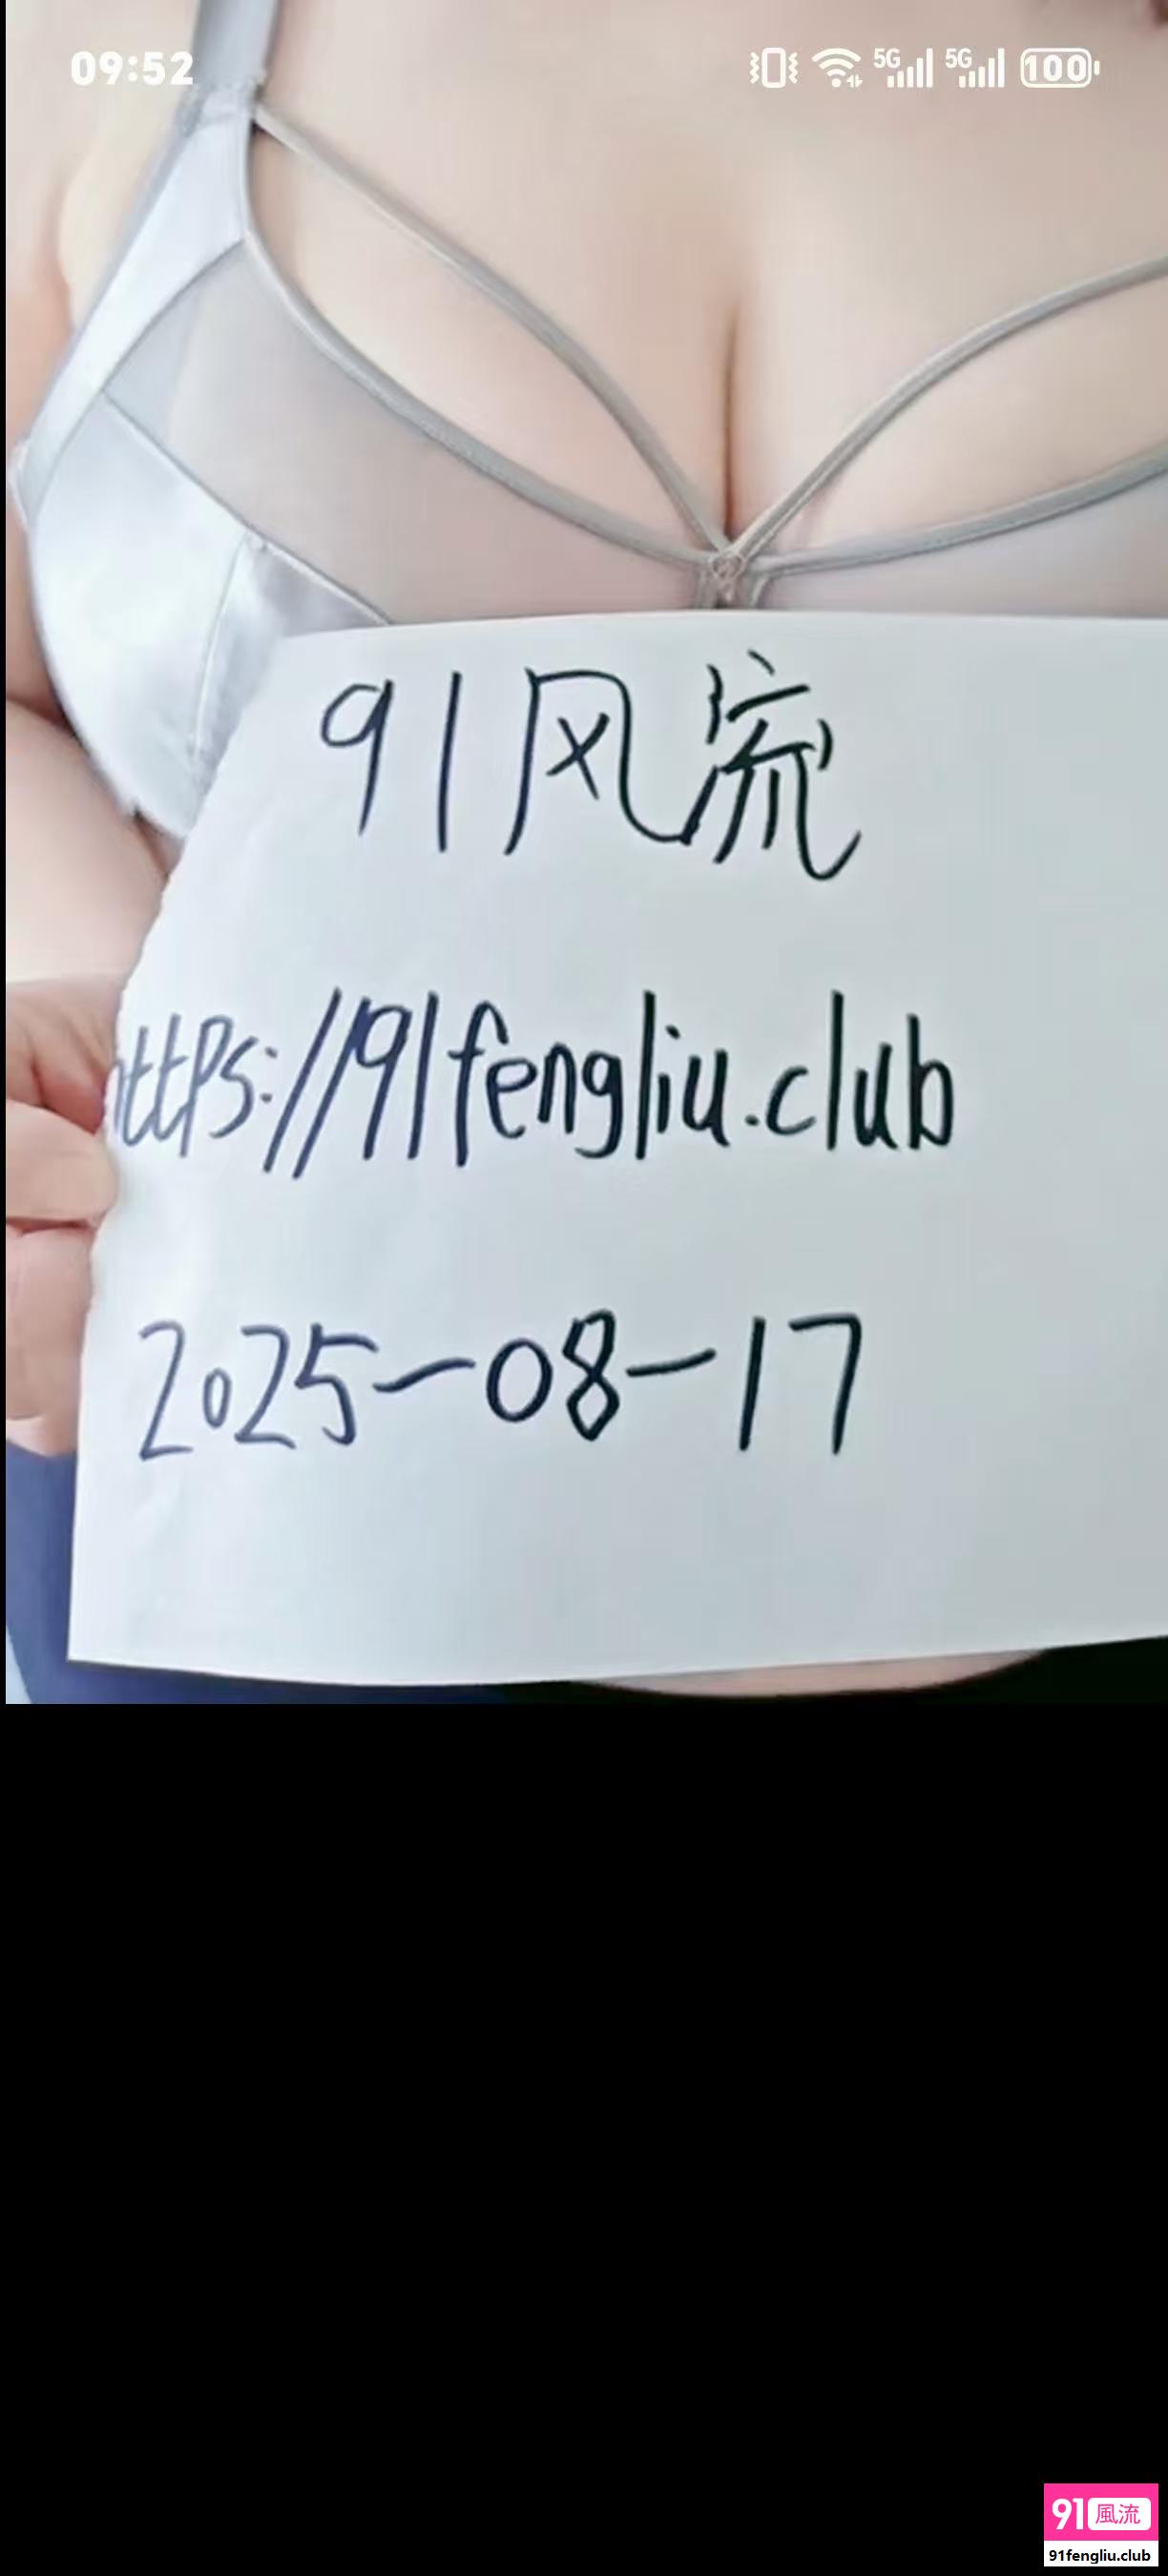 09:52
5G 5G 100
91风流
https://91fengliu.club
2025-08-17
91風流
91fengliu.club